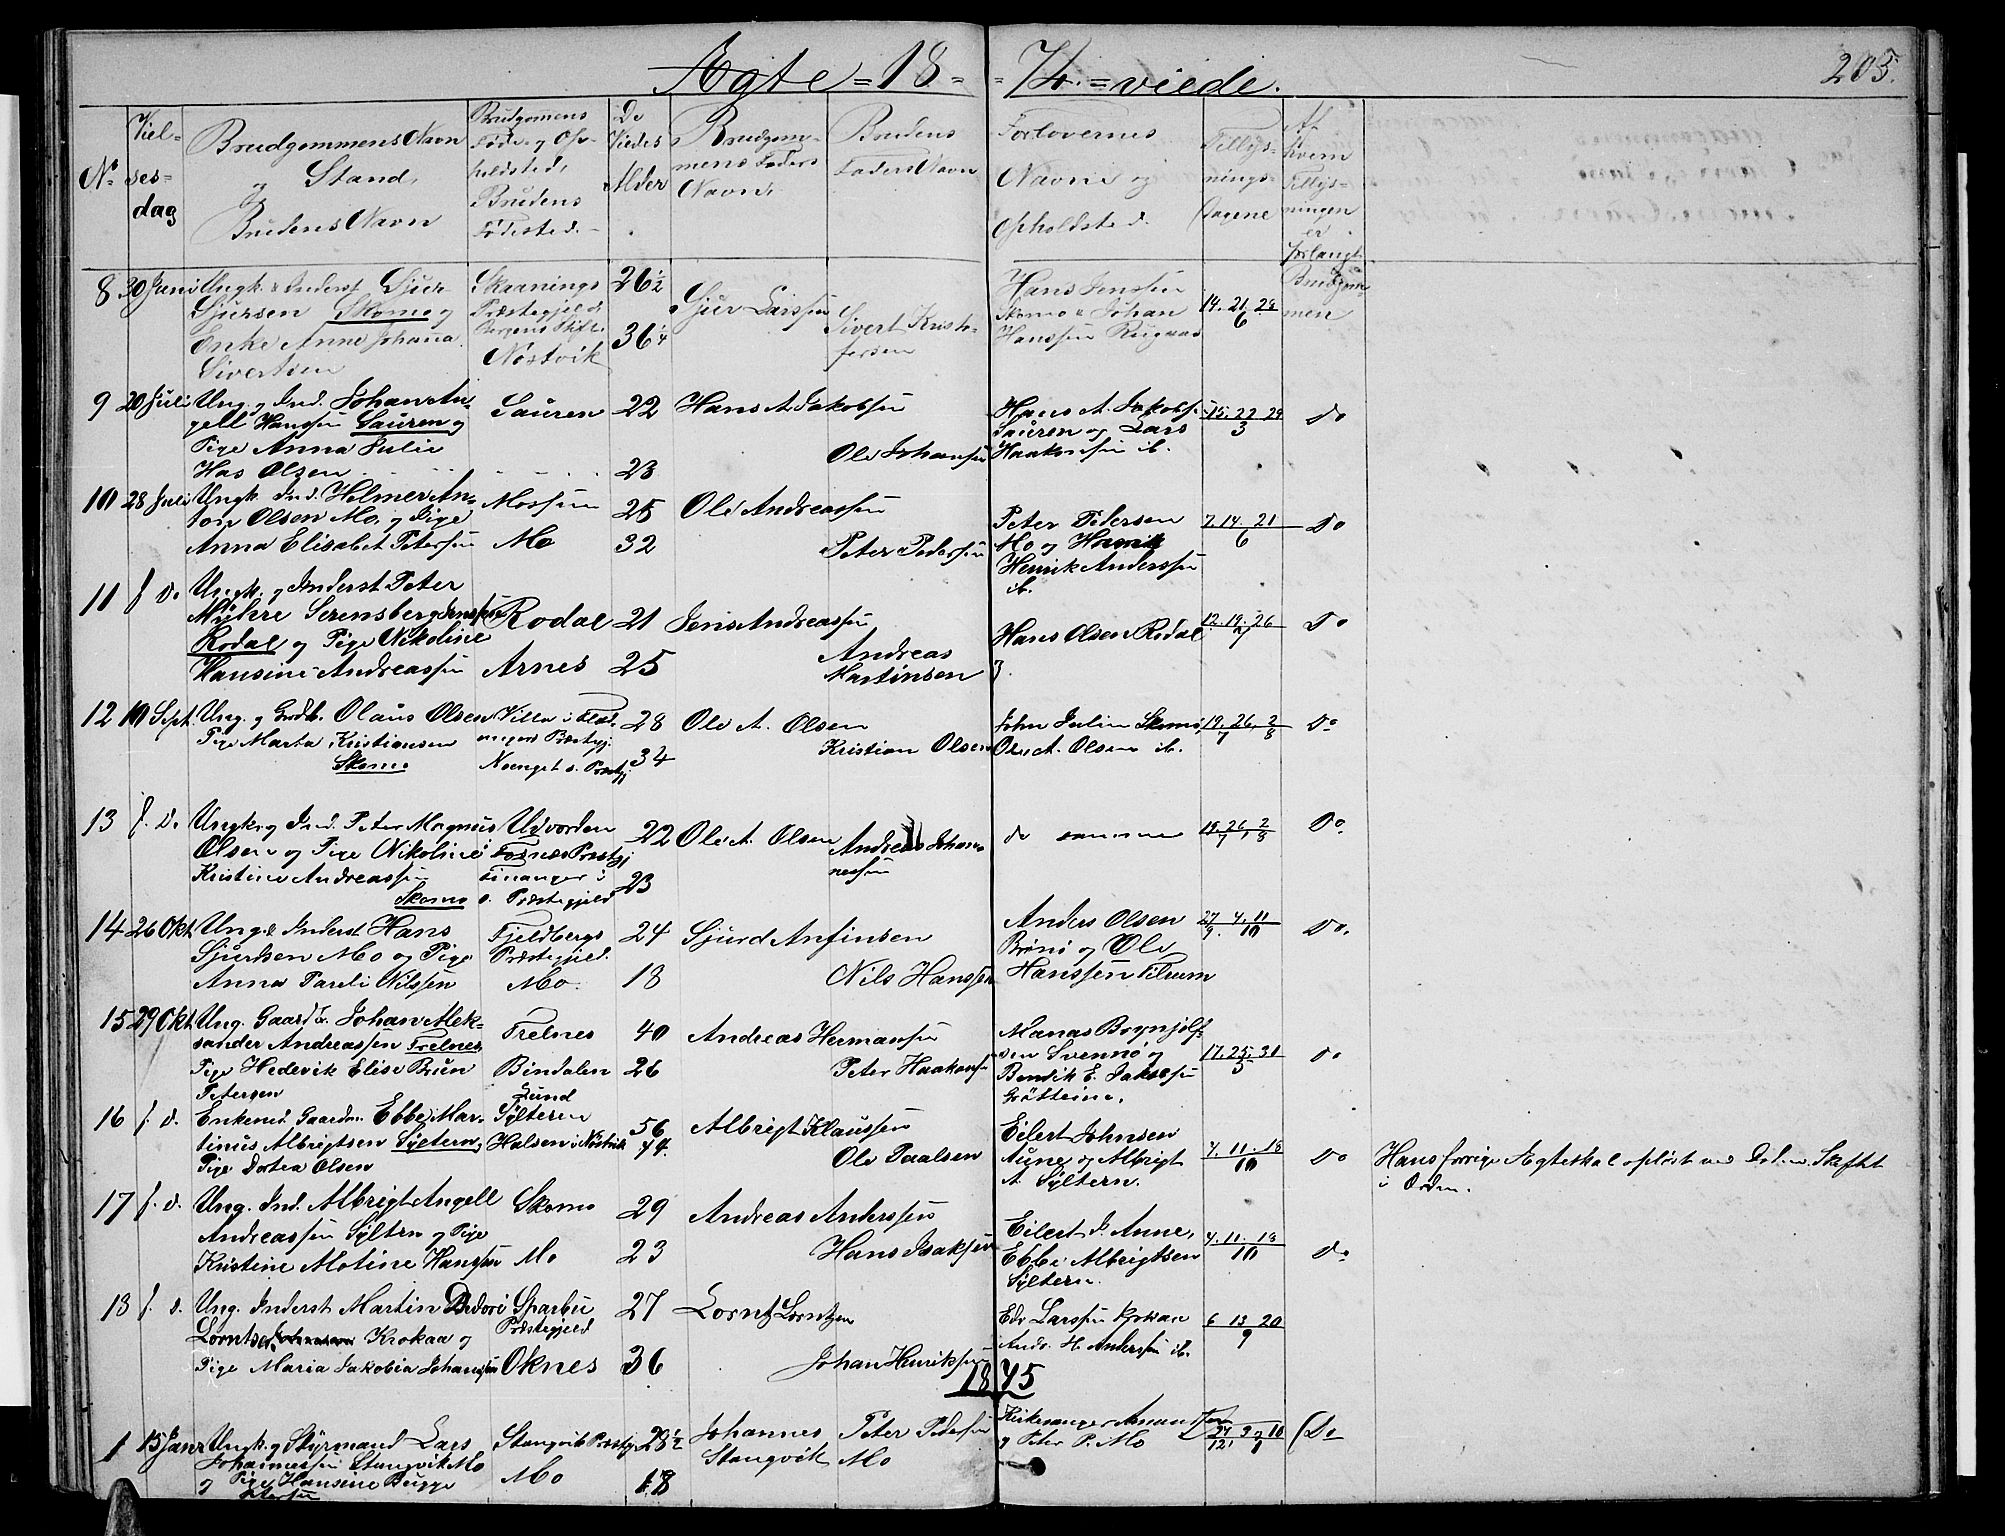 Ægte = 18 = = 74. = viede. 205.
No
Viel-
ses-
dag
Brudgommens Navn
og
Stand,
Brudens Navn
Brudgomens
Føde- og Op-
holdsted,
Brudens
Fødested.
De
Viedes
Alder
Brudgom-
mens Faders
Navn,
Brudens
Faders Navn
Forlovernes
Navne og
Opholdsted.
Tillys-
nings-
dagene
Af
hvem
Tillys-
ningen
er
forlangt
8 30 Juni Ungk. & Inderst Sjur
Sjursen Skomo og
Enke Anne Johana
Sivertsen
Skaanings
Præstegjeld
Bergens Stift
Nøstvik
26½
36¼
Sjur Larssen
Sivert Kristo-
fersen
Hans Jenssen
Skomo & Johan
Hanssen
14. 21. 28
6
Brudgom-
men
9 20 Juli Ung. og Ind. Johan An-
gell Hanssen Sauren og
Pige Anna Julie
Has Olsen
Sauren
22
23
Hans A. Jakobsen
Ole Johansen
Hans A. Jakobs.
Sauren og Lars
Haakonsen ib.
15. 22. 29
3
Do
10 28 Juli Ungk. Ind. Helmer An-
ton Olsen Mo, og Pige
Anna Elisabet Petersen
Mo
25
32
Ole Andreassen
Peter Pedersen
Peter Pedersen
Mo og
Henrik Anderssen
ib.
7. 14. 21
6
Do
11 f. D. Ungk. og Inderst Peter
Myhre Serensberg Jenssen
Rodal og Pige Nikoline
Hansine Andreassen
Rodal
Arnes
21
25
Jens Andreassen
Andreas
Martinsen
Hans Olsen Rodal
12. 19. 26
7
Do
12 10 Sept. Ung. og Grdb. Olaus Olsen
Pige Marta Kristiansen
Skomo
28
34
Ole A. Olsen
Kristian Olsen
John Julin Skomo,
Ole A. Olsen ib.
19. 26. 2
7 8
Do
13 f. D. Ungk. og Ind. Peter Magnus
Olsen og Pige Nikoline
Kristine Andreassen
Skomo
Udvorden
22
23
Ole A. Olsen
Andreas Johan-
nessen
de samme
19. 26. 2
7 8
Do.
14 26 Okt. Ung. & Inderst Hans
Sjursen Mo og Pige
Anna Pareli Nilssen
Fjeldbergs
Præstegjeld.
Mo.
24
18
Sjurd Anfinsen
Nils Hanssen
Anders Olsen
Brønø og Ole
Hanssen Tilrum
27. 4. 11
9. 10
Do.
15 29 Okt. Ung. Gaardbr. Johan Alek-
sander Andreassen Trelnes,
Pige Hedevik Elise Brun
Petersen
Trelnes
Bindalen
40
26
Andreas Hermansen
Peter Haakonsen
Manas Brynjolf-
sen Svennø og
Bendik E. Jakobsen
17. 25. 31
5
do
16 f. d. Enkemd. Gaardm. Ebbe Mar-
tinus Albrigtsen Syltern,
Pige Dortea Olsen
Lund
Syltern
Halsen i Nøstvik
56
44.
Albrigt Klaussen
Ole Paalsen
Eilert Johnsen
Aune og Albrigt
A. Syltern.
4. 11. 18
10
Do
Hans forrige Ægteskab opløst
i Orden.
17 f. d. Ung. Ind. Albrigt Angell
Andreassen Syltern og Pige
Kristine Motine Hanssen
Skomo
Mo
29
23
Andreas Anderssen
Hans Isaksen
Eilert J. Aune,
Ebbe Albrigtsen
Syltern.
4. 11. 18
10
Do
18 f. d. Ung. Inderst Martin Bedori
Lorntsen Krokaa og
Pige Maria Jakobia Johansen
Sparbu
Præstegjeld
Oknes
27
36
Lorntz Lorntzen
Johan Henriksen
Edv Larssen Krokaa
Andr. H. Anderssen ib.
6 13 20
9
1875
1 15 Janr Ungk. og Styrmand Lars
Johannessen Stangvik Mo
og Pige Hansine Bugge
Petersen
Stangvik Præstgj.
Mo
28½
18
Johannes
Stangvik
Peter Pedersen
Mo
Kirkesanger
og Peter P. Mo
27 3 10
12. 1
Do